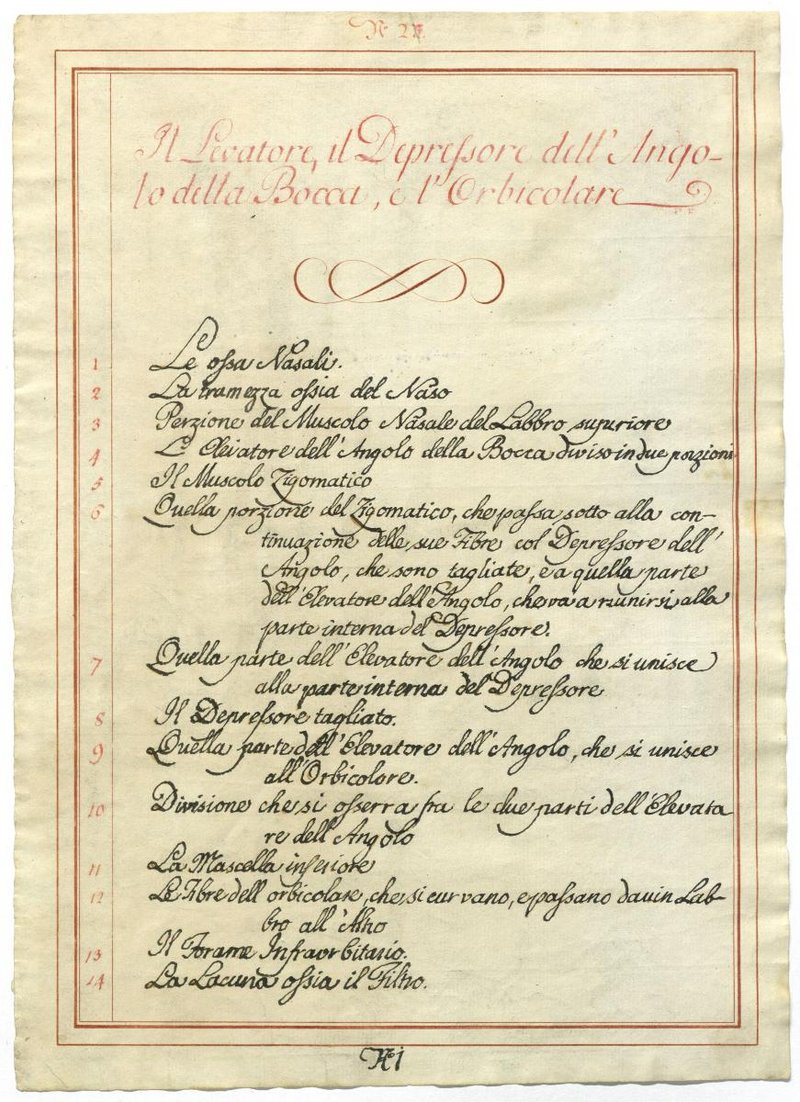 N. 2
Il Levatore, il Depressore dell' Ango-
lo della Bocca, e l'Orbicolare
1 Le ossa Nasali.
2 La tramezza ossia del Naso
3 Perzione del Muscolo Nasale del Labbro superiore
4 L' Elevatore dell' Angolo della Bocca diviso in due porzioni
5 Il Muscolo Zigomatico
6 Quella porzione del Zigomatico, che passa sotto alla con-
tinuazione delle sue Fibre col Depressore dell'
Angolo, che sono tagliate, e a quella parte
dell'Elevatore dell'Angolo, che va a riunirsi alla
parte interna del Depressore.
7 Quella parte dell'Elevatore dell'Angolo che si unisce
alla parte interna del Depressore
8 Il Depressore tagliato.
9 Quella parte dell'Elevatore dell'Angolo, che si unisce
all'Orbicolore.
10 Divisione che si osserra fra le due parti dell'Elevata
re dell'Angolo
11 La Mascella inferiore
12 Le Fibre dell orbicolare, che si curvano, e passano da uin Lab-
bro all'Altro
13 Il Forame Infraorbitario.
14 La Lacuna ossia il Filtro.
N. 1